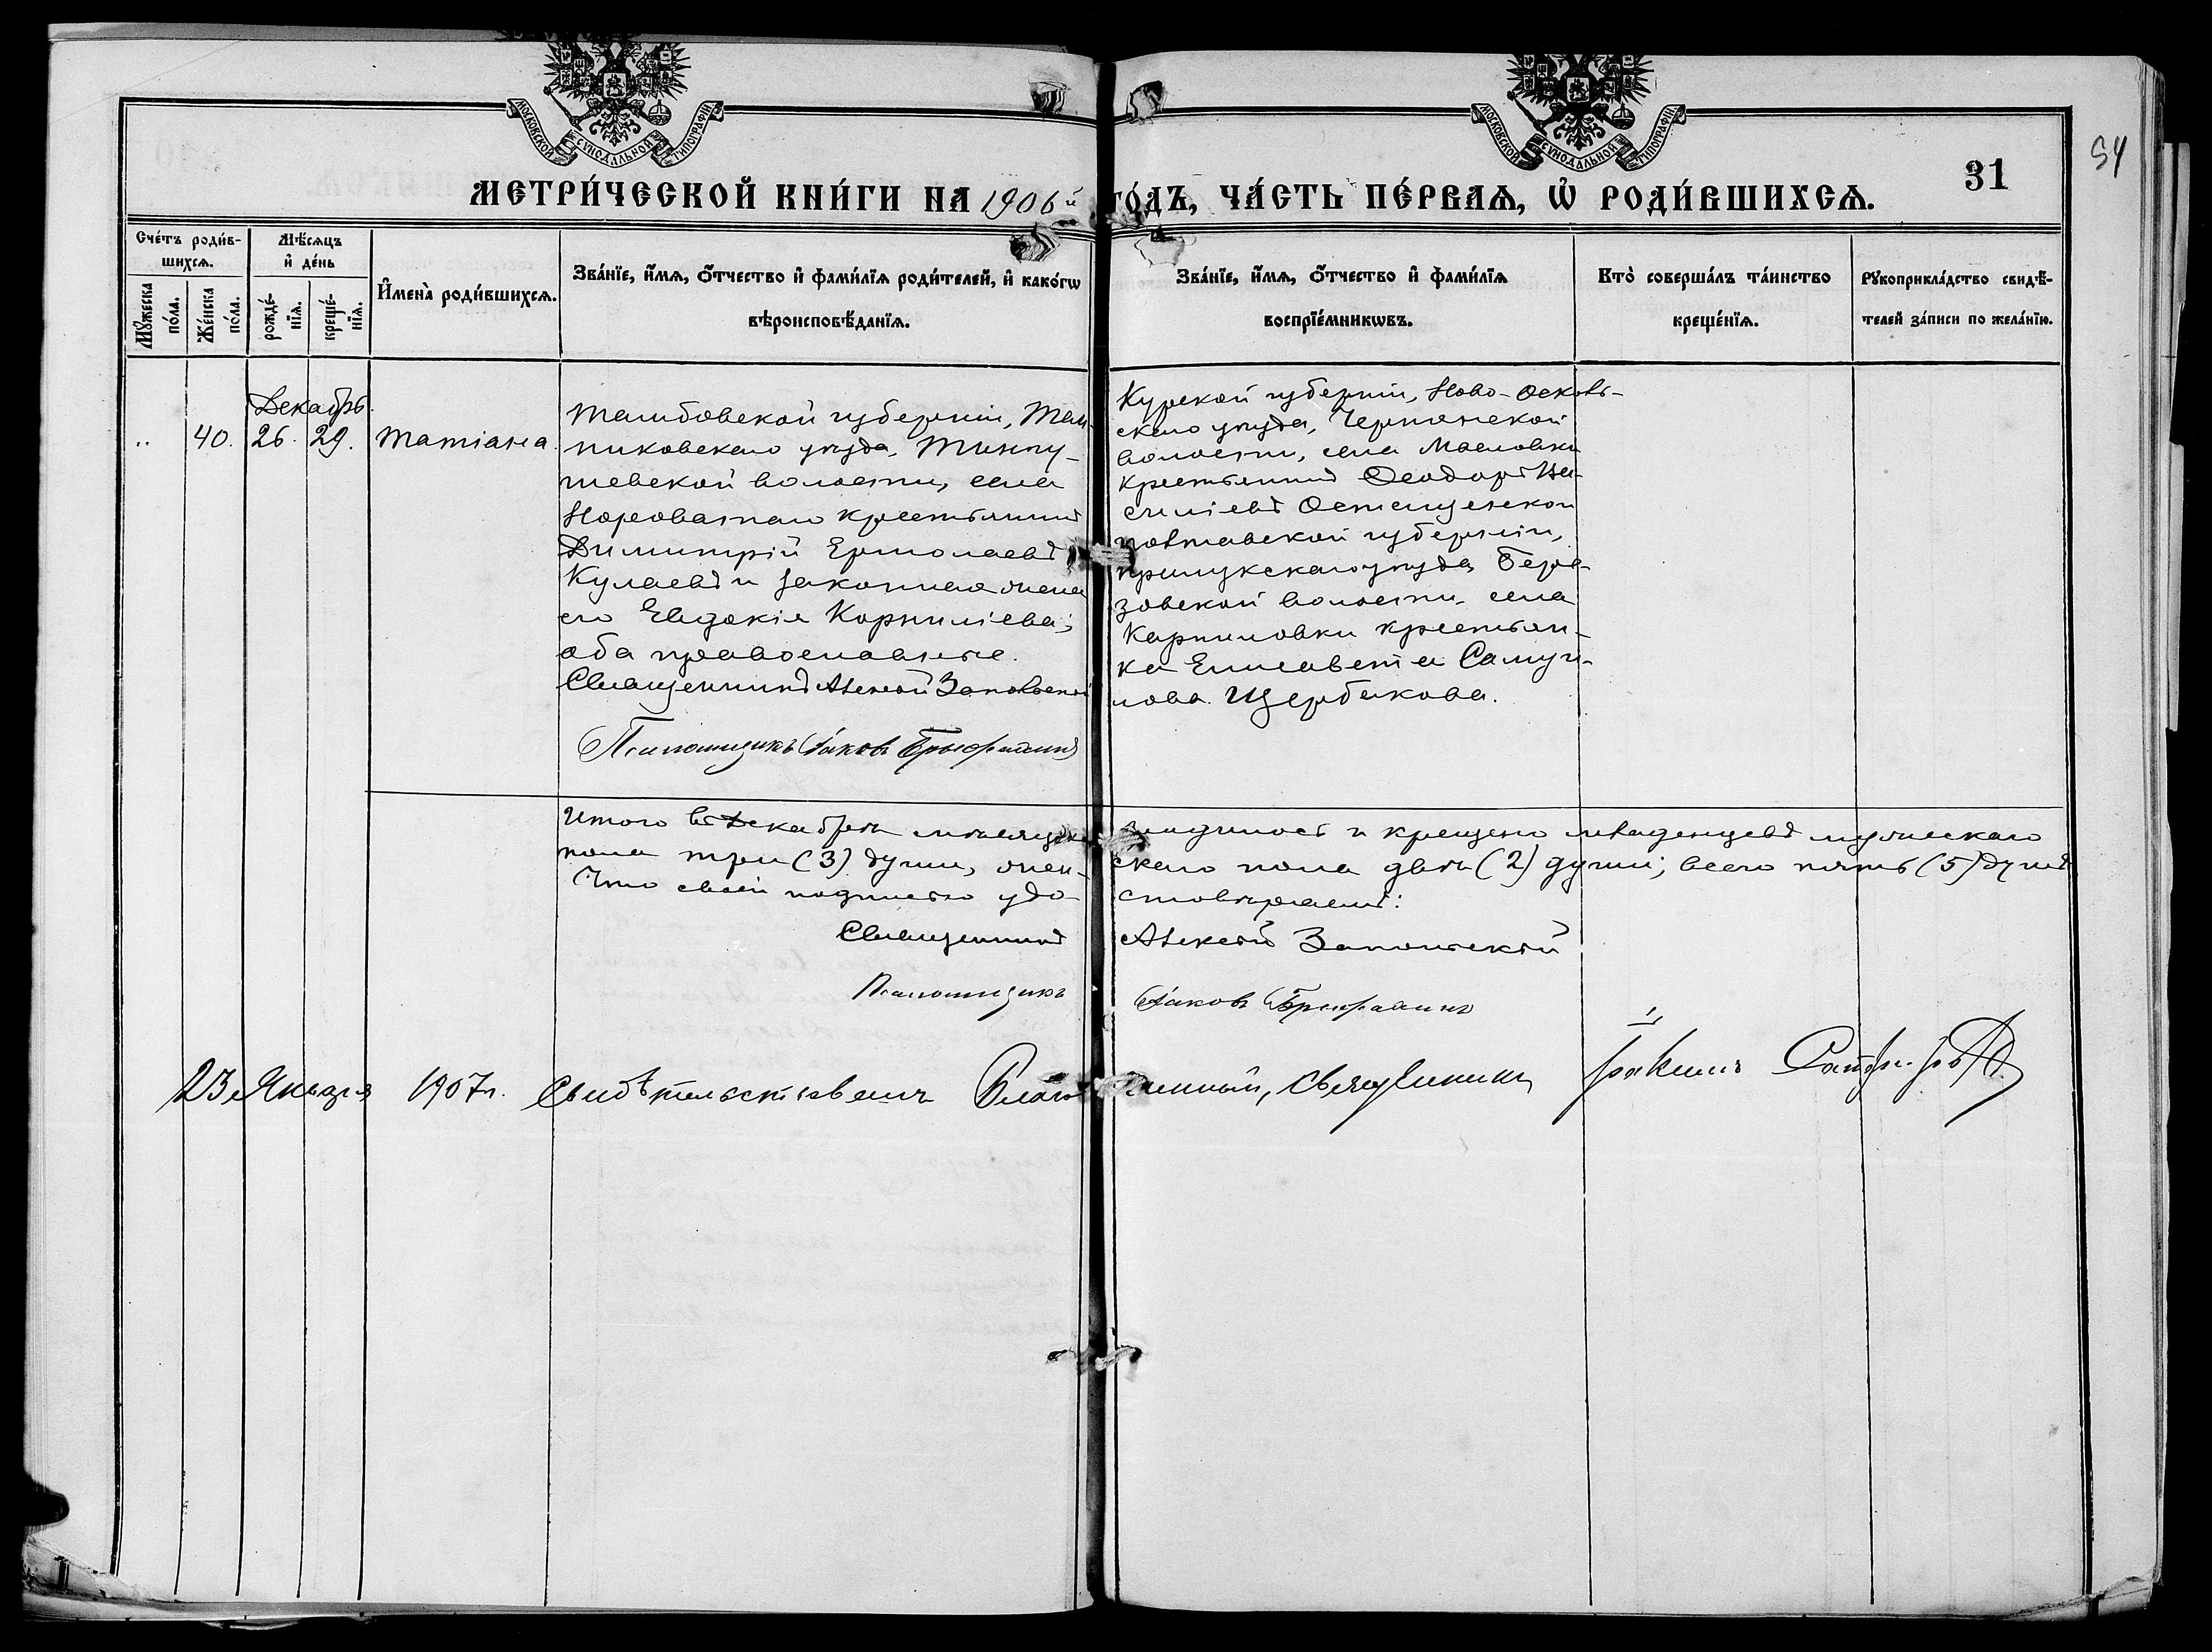 МОСКОВСКОЙ СѴНОДАЛЬНОЙ ТИПОГРАФІИ
МОСКОВСКОЙ СѴНОДАЛЬНОЙ ТИПОГРАФІИ
МЕТРИ́ЧЕСКОЙ КНИ́ГИ НА 1906й ГО́ДЪ, ЧА́СТЬ ПЕ́РВАѦ, Ѡ҆ РОДИ́ВШИХСѦ.
31
54
Сче́тъ роди́в-
шихсѧ.
Мѣ́сѧцъ
и҆ де́нь
Мꙋ́жеска
по́ла.
Же́нска
по́ла.
рожде́-
нїѧ.
креще́-
нїѧ.
И҆мена̀ роди́вшихсѧ.
Зва́нїе, и҆́мѧ, ѻ҆́тчество и҆ фами́лїѧ роди́телей, и҆ како́гѡ
вѣроисповѣ́данїѧ.
Зва́нїе, и҆́мѧ, ѻ҆́тчество и҆ фами́лїѧ
воспрїе́мникѡвъ.
Кто̀ соверша́лъ та́инство
креще́нїѧ.
Рꙋкоприкла́дство свидѣ́-
телей за́писи по жела́нїю.
Декабрь.
..
40.
26.
29.
Татіана.
Тамбовской губерніи, Тем-
никовскаго уѣзда,
шевской волости, села
Нароватаго крестьянинъ
Димитрій Ермолаевъ
Кулаевъ и законная жена
его Евдокія Корниліева;
оба православные.
Священникъ Алексѣй Запольскій
Псаломщикъ Іаковъ
Курской губерніи, Ново-Осколь-
скаго уѣзда, Чернянской
волости, села Масловки
крестьянинъ Ѳеодоръ Ва-
силіевъ
Полтавской губерніи,
Прилукскаго уѣзда, Бере-
зовской волости, села
Карпиловки крестьян-
ка Елисавета Самуи-
лова Щербакова.
Итого въ Декабрѣ мѣсяцѣ родилось и крещено младенцевъ мужескаго
пола три (3) души, жен- скаго пола двѣ (2) души; всего пять (5) душъ
Что своей подписью удо- стовѣряемъ:
Священникъ Алексѣй Запольскій
Псаломщикъ Іаковъ
23 Января 1907 г. Свидѣтельствовалъ Благочинный, Священникъ